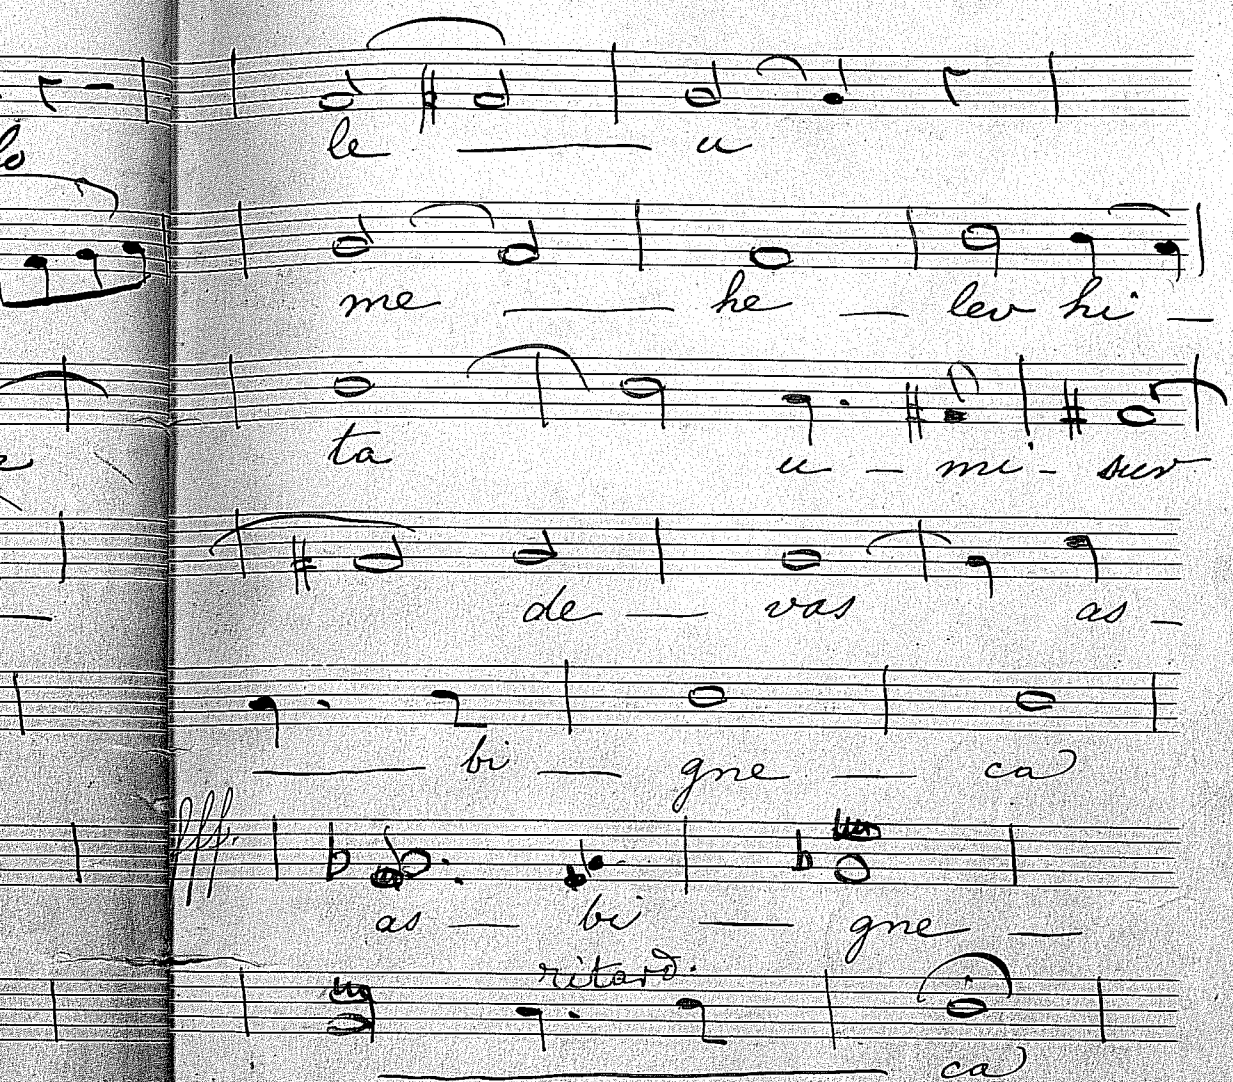 le u
me he lev hi
ta u - mi - sur
de vas as
bi gne ca
fff.
as bi gne
ritard.
ca